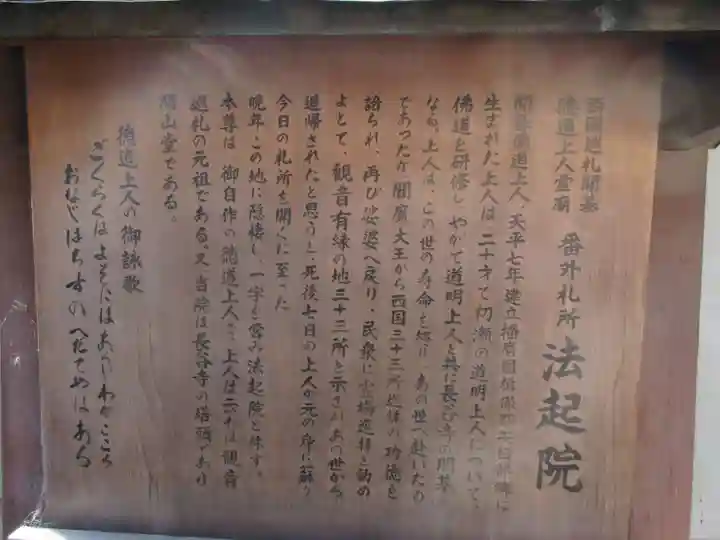 西国巡礼開基
徳道上人霊廟
番外札所 法起院
開基徳道上人、天平七年建立播磨国揖保
生まれた上人は二十才で初瀬の道明上人について、
佛道を研修し、やがて道明上人と共に長谷寺の開基と
なる。上人は、この世の寿命を終り、あの世へ赴いたの
であったが閻魔大王から西国三十三所巡拝の功徳を
語られ、再び娑婆へ戻り、民衆に霊場巡拝を勧め
よとて、観音有縁の地三十三所を示されあの世から
退帰されたと思うと、死後七日の上人が元の身に蘇り
今日の札所を開くに至った
晩年この地に隠棲し、一宇を営み法起院と称す。
本尊は、御自作の徳道上人で、上人は三十三観音
巡礼の元祖である。又当院は長谷寺の塔頭であり
開山堂である。
徳道上人の御詠歌
ごくらくはよそにはあらじわがこころ
おなじはちすのへだてやはある